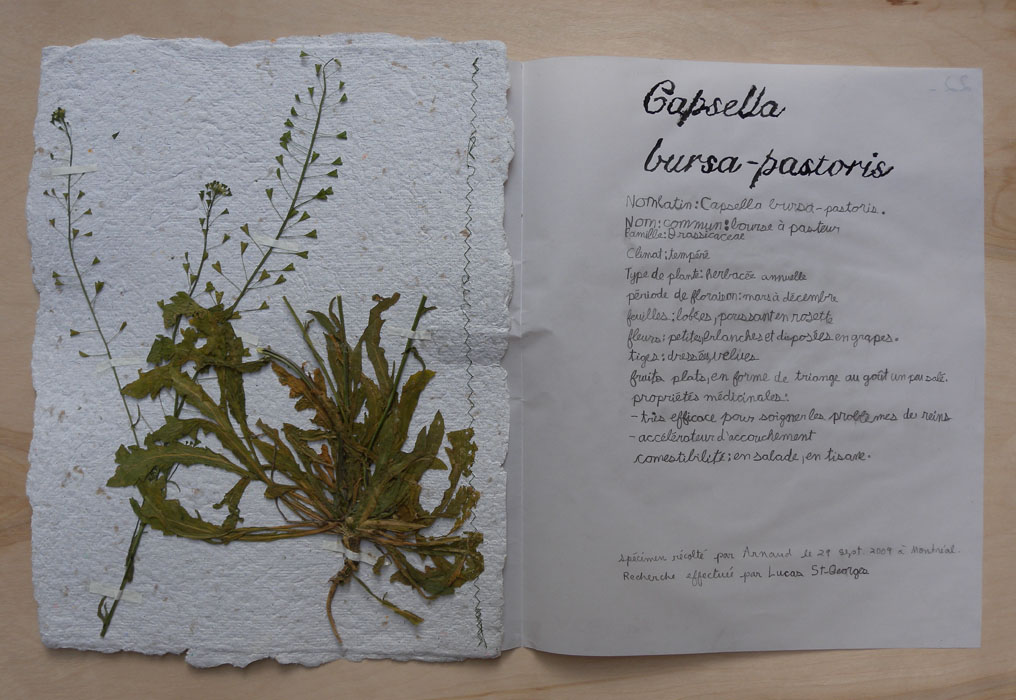 Capsella
bursa-pastoris
Nom latin: Capsella bursa-pastoris.
Nom: commun: bourse à pasteur
Famille: Brassecaceae
Climat: tempéré
Type de plante: herbacée annuelle
période de floraison: mars à décembre
feuilles: lobées, poussant en rosette
fleurs: petites, blanches et disposées en grapes.
tiges: dressées, velues
fruits plats, en forme de triange au goût un peu salé.
propriétés médicinales:
- très efficace pour soigner les problèmes de reins
- accélérateur d'accouchement
comestibilité: en salade, en tisane.
Spécimen récolté par Arnaud le 29 sept. 2009 à Montréal.
Recherche effectué par Lucas St-Georges